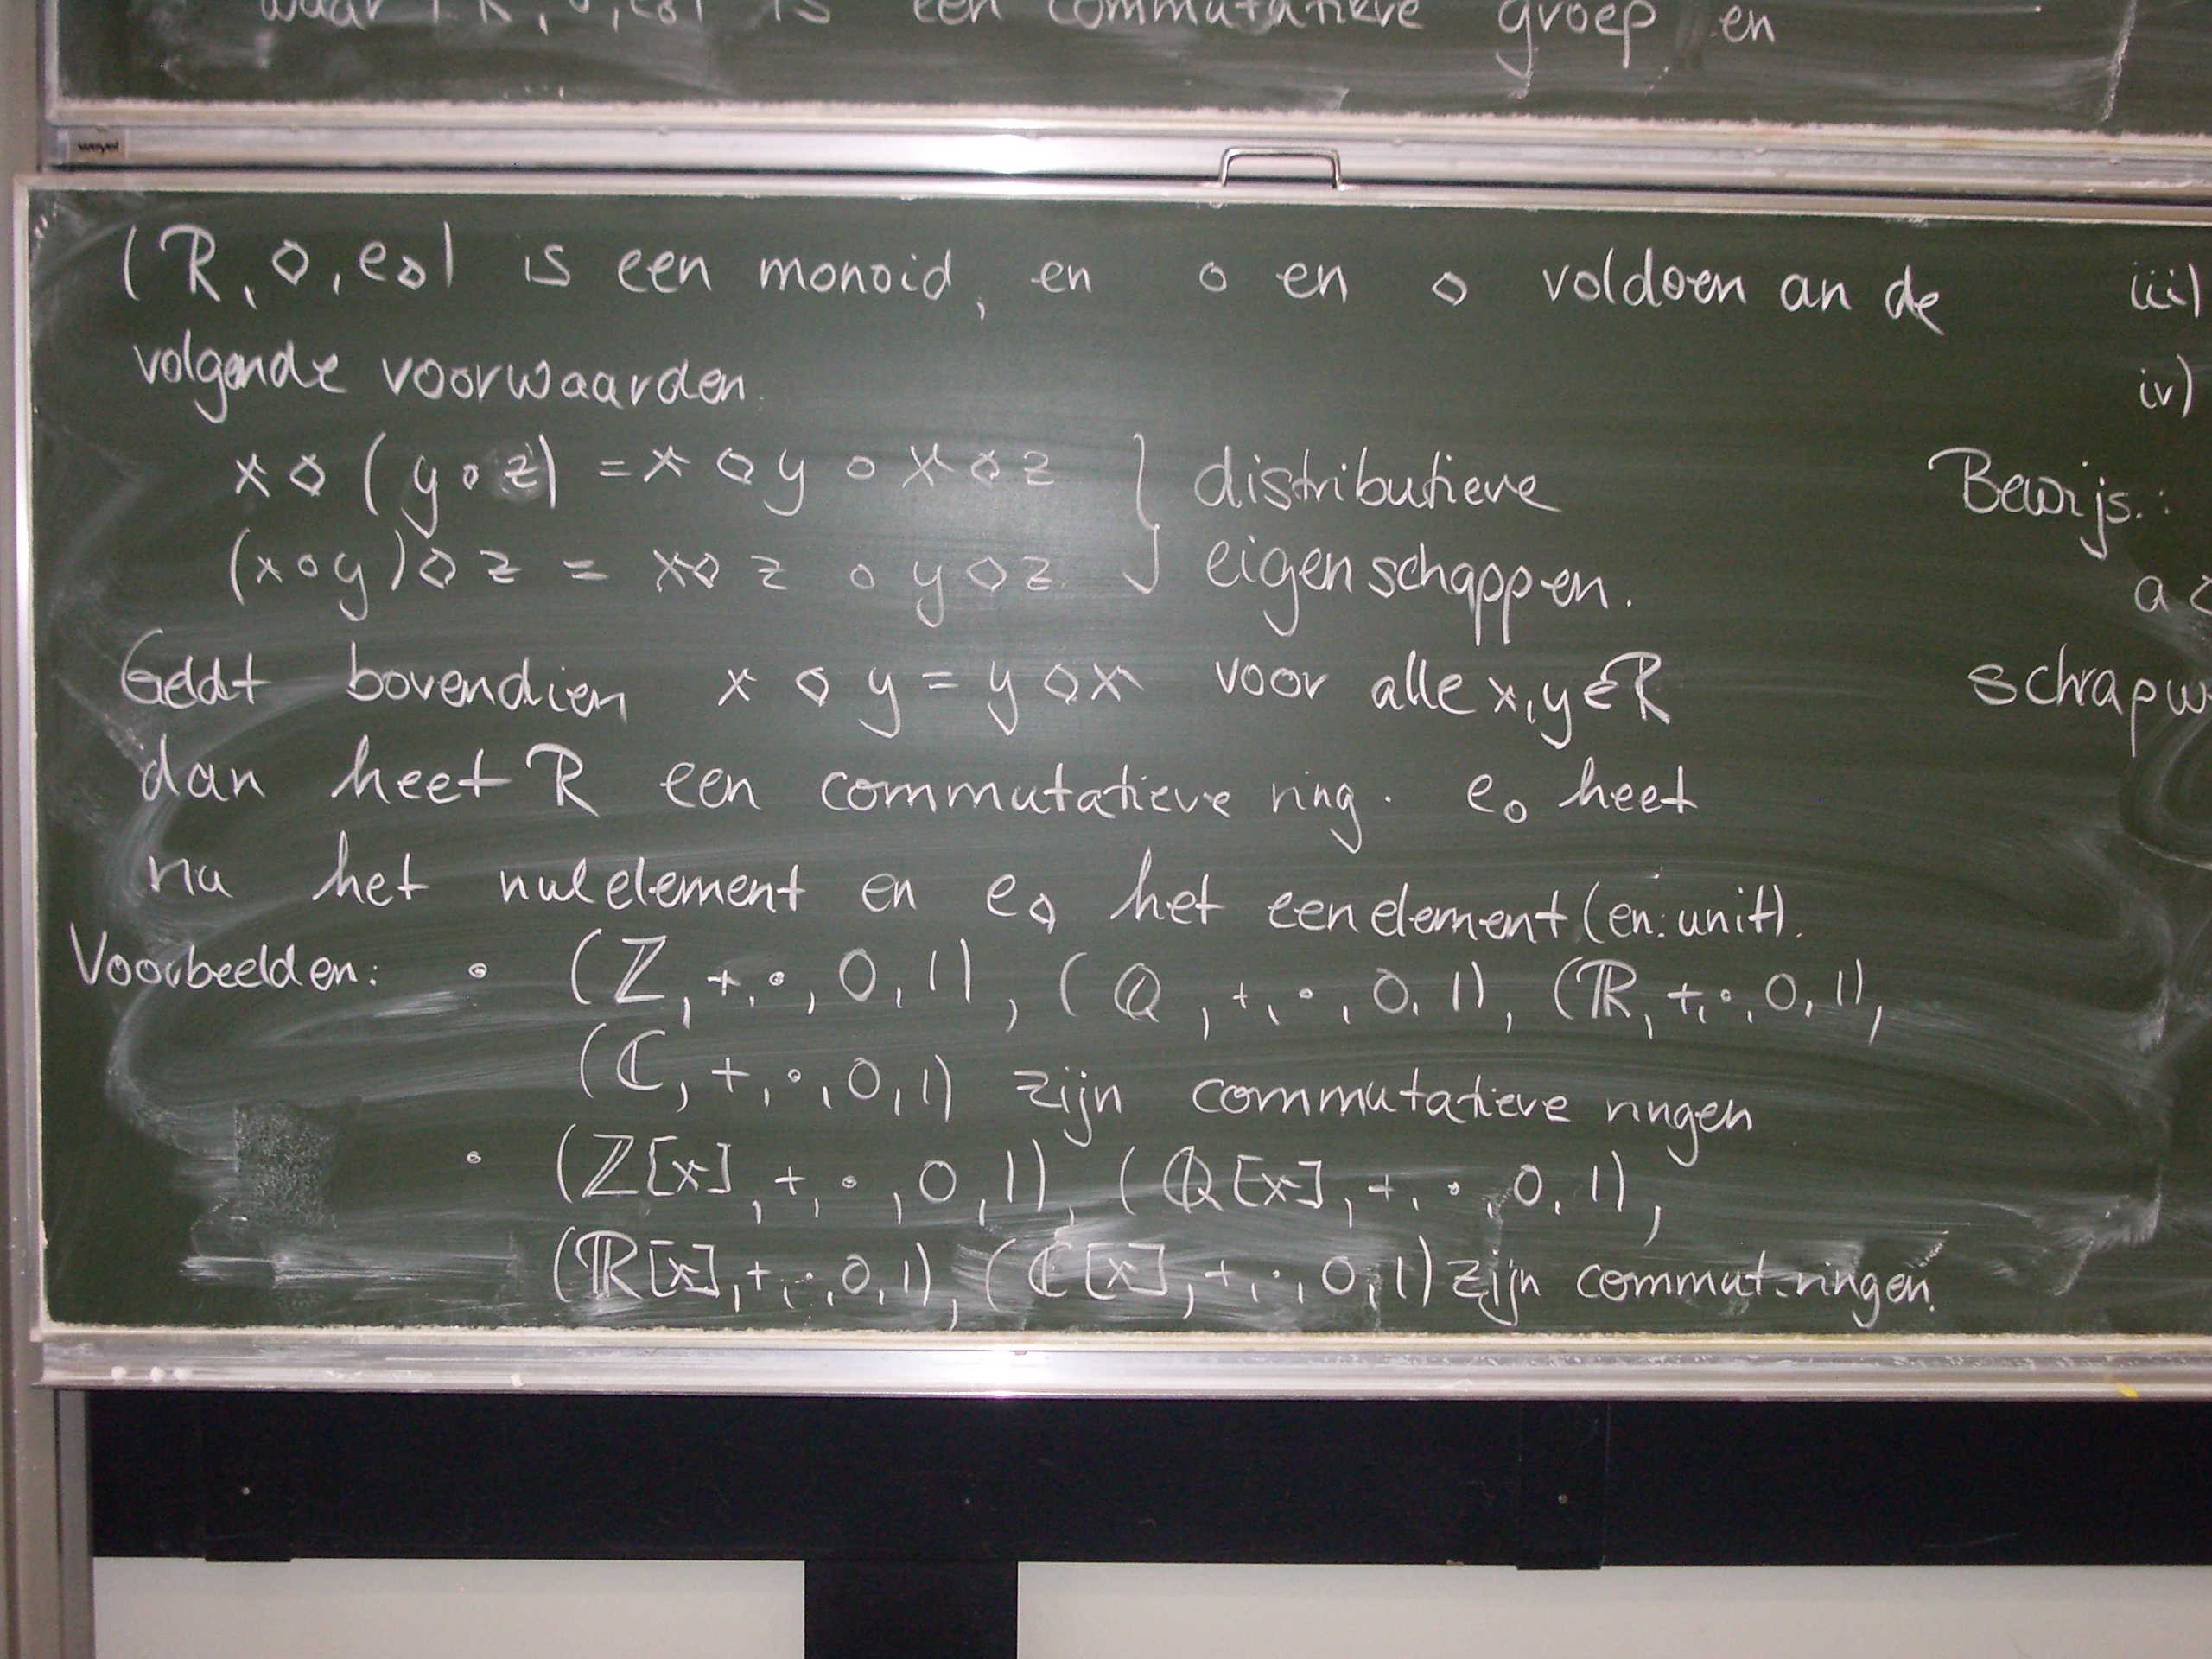 waar (R, ∘, e∘) is een commutatieve groep en
weyel
(R, ◇, e◇) is een monoid, en ∘ en ◇ voldoen an de
volgende voorwaarden.
x ◇ (y ∘ z) = x ◇ y ∘ x ◇ z } distributieve
(x ∘ y) ◇ z = x ◇ z ∘ y ◇ z } eigenschappen.
Geldt bovendien x ◇ y = y ◇ x voor alle x, y ∈ R
dan heet R een commutatieve ring. e∘ heet
nu het nulelement en e◇ het eenelement (en: unit).
Voorbeelden: • (ℤ, +, ·, 0, 1), (ℚ, +, ·, 0, 1), (ℝ, +, ·, 0, 1),
(ℂ, +, ·, 0, 1) zijn commutatieve ringen
• (ℤ[x], +, ·, 0, 1), (ℚ[x], +, ·, 0, 1),
(ℝ[x], +, ·, 0, 1), (ℂ[x], +, ·, 0, 1) zijn commut. ringen.
iii)
iv)
Bewijs:
a
schrapw